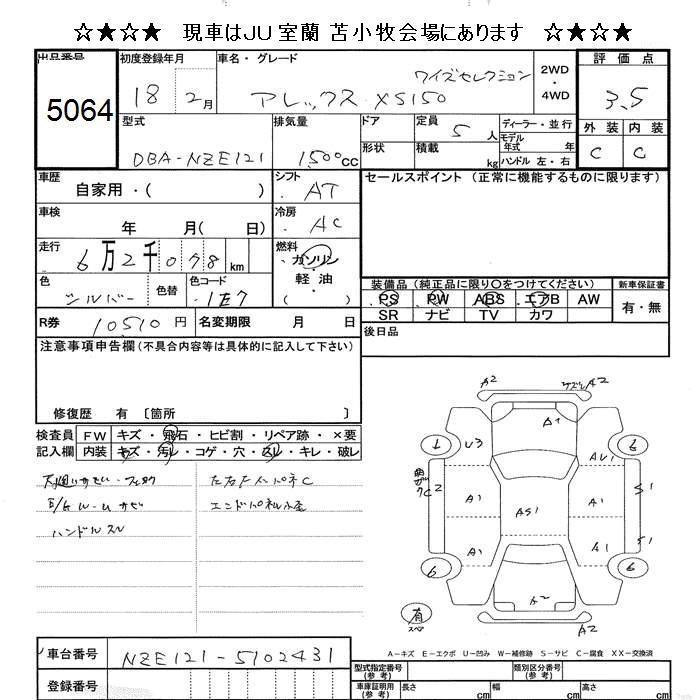 ☆★☆★ 現車はJU室蘭 苫小牧会場にあります ☆★☆★
出品番号
5064
初度登録年月
18 2月
車名・グレード
ワイズセレクション
アレックス XS150
2WD
・
4WD
評価点
3.5
外装 内装
C C
型式
DBA-NZE121
排気量
1500cc
ドア
定員 5人
ディーラー・並行
モデル
年式 年
形状
積載 kg
ハンドル 左・右
車歴
自家用・( )
シフト
AT
セールスポイント (正常に機能するものに限ります)
車検
年 月( 日)
冷房
AC
走行
6万2千078km
燃料
ガソリン
・軽油
・( )
色
シルバー
色替
色コード
1E7
装備品(純正品に限り○をつけてください)
新車保証書
PS PW ABS エアB AW
SR ナビ TV カワ
有・無
R券 10510円
名変期限 月 日
後日品
注意事項申告欄(不具合内容等は具体的に記入して下さい)
修復歴 有 〔箇所 〕
検査員
記入欄
FW キズ・飛石・ヒビ割・リペア跡・×要
内装 キズ・汚レ・コゲ・穴・スレ・キレ・破レ
左右Fインパネ C
エンドパネル
ハンドルスレ
A2
A2
A1
1
U3
6
AU1
C2
A1
AS1
A1
S1
A1
A1
S1
6
6
A2
A2
有
スペア
A-キズ E-エクボ U-凹み W-補修跡 S-サビ C-腐食 XX-交換済
車台番号 NZE121-5102431
登録番号
型式指定番号
(参考)
類別区分番号
(参考)
車庫証明用
(参考)
長さ cm
幅 cm
高さ cm